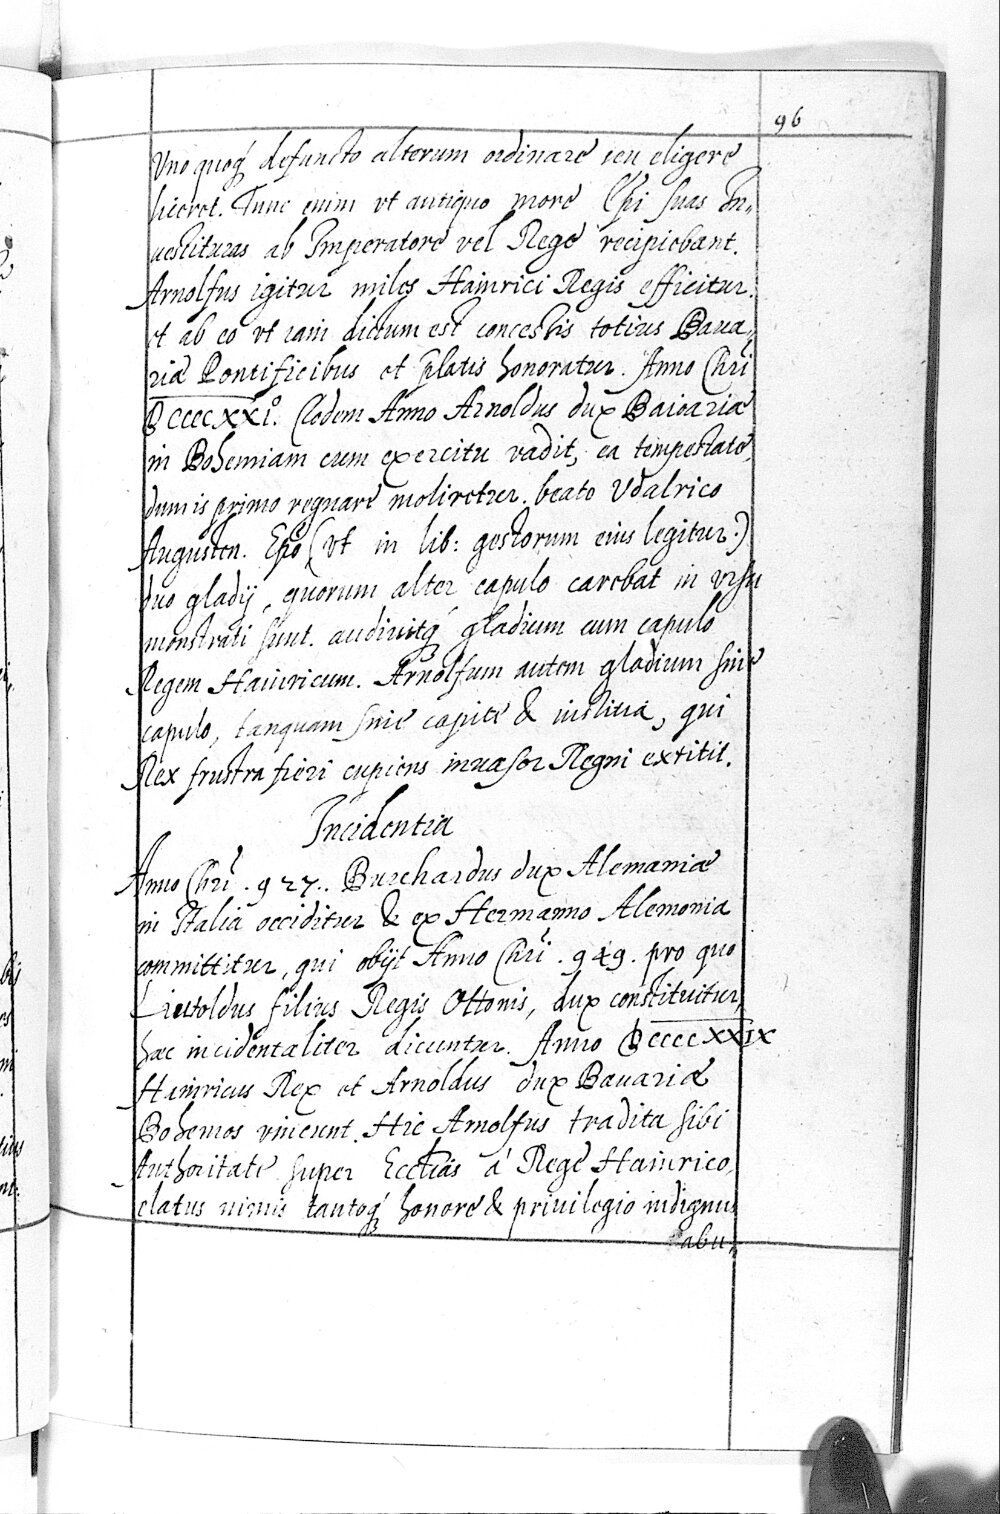 96
Uno quoq́ defuncto alterum ordinare seu eligere
liceret. Tunc enim vt antiquo more Ep̄i suas In„
uestituras ab Imperatore vel Rege recipiebant.
Arnolfus igitur miles Hainrici Regis efficitur.
et ab eo vt iam dictum est concessis totius Baua„
riæ Pontificibus et p̄latis honoratur. Anno Chr̄i
DCCCCXXI°. Eodem Anno Arnoldus dux Baioariæ
in Bohemiam cum exercitu vadit, ea tempestate,
dum is primo regnare moliretur. beato Vdalrico
Augusten. Ep̄o (vt in lib: gestorum eius legitur.)
duo gladij, quorum alter capulo carebat in visu
monstrati sunt. audiuitq́ gladium cum capulo
Regem Hainricum. Arnolfum autem gladium sine
capulo, tanquam sine capite & iustitia, qui
Rex frustra fieri cupiens inuasor Regni extitit.
Incidentia
Anno Chr̄i . 927.. Burchardus dux Alemaniæ
in Italia occiditur & ex Hermanno Alemonia
committitur, qui obijt Anno Chr̄i . 949. pro quo
Liutoldus filius Regis Ottonis, dux constituitur,
hæc incidentaliter dicuntur. Anno DCCCCXXIX
Hainricus Rex et Arnoldus dux Bauariæ
Bohemos vincunt. Hic Arnolfus tradita sibi
Authoritate super Eccl̄ias á Rege Hainrico,
elatus nimis tantoq́ honore & priuilegio indignus
abu„